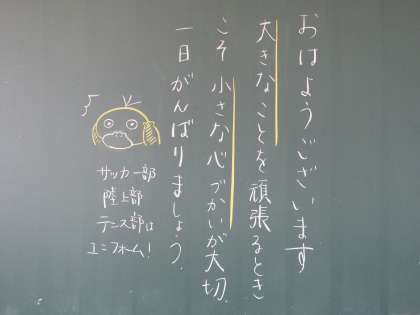 おはようございます
大きなことを頑張るとき
こそ小さな心づかいが大切.
一日がんばりましょう.
サッカー部
陸上部
テニス部は
ユニフォーム!